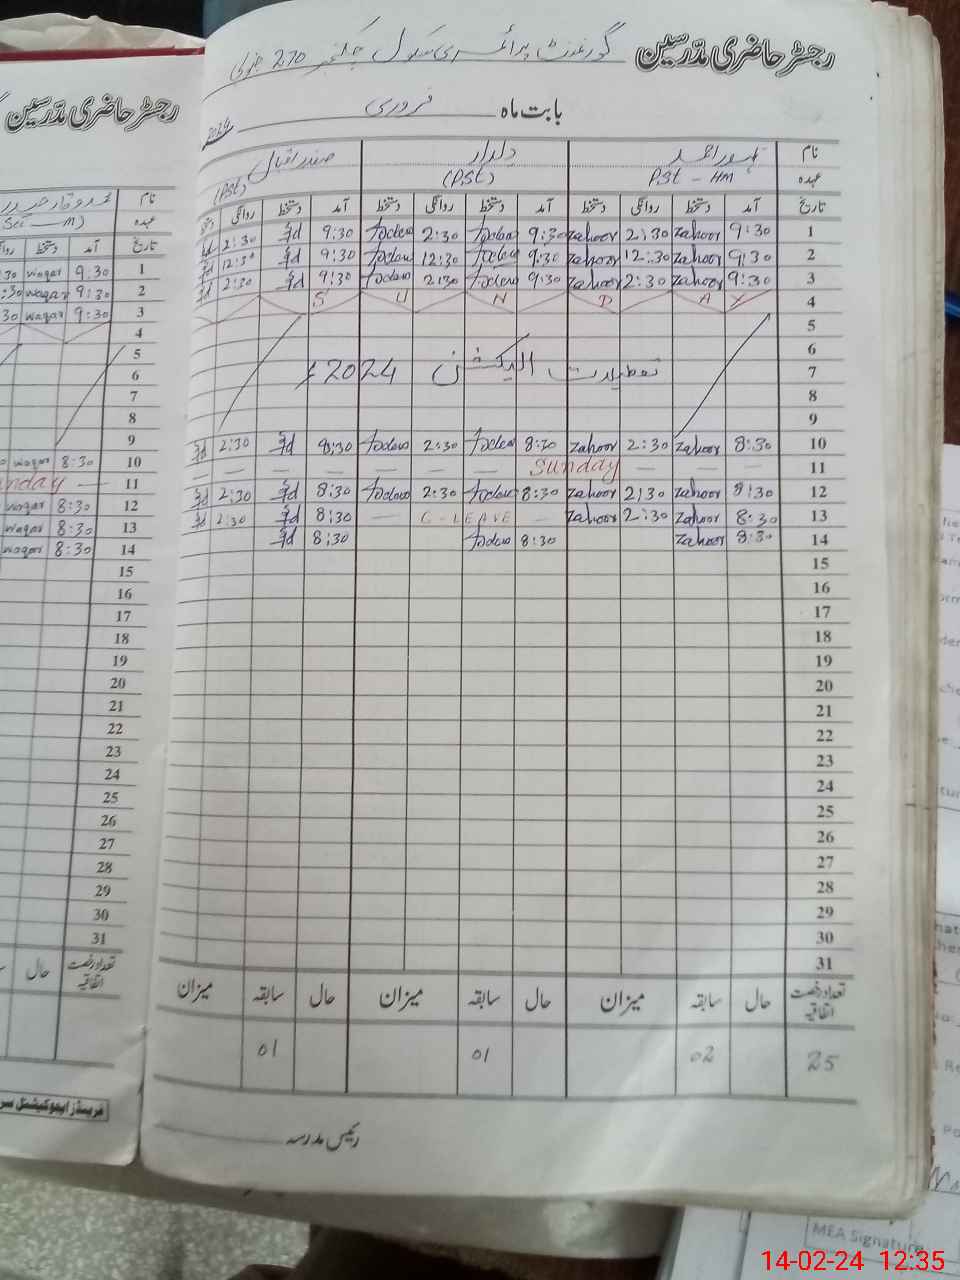 رجسٹر حاضری مدرسین گورنمنٹ پرائمری سکول چک نمبر 270 جنوبی
بابت ماہ فروری 2024
نام ظہور احمد دلدار صفدر اقبال
عہدہ PST - HM (PST) (PST)
تاریخ آمد دستخط روانگی دستخط آمد دستخط روانگی دستخط آمد دستخط روانگی دستخط
1 9:30 zahoor 2:30 zahoor 9:30 2:30 9:30 2:30
2 9:30 zahoor 12:30 zahoor 9:30 12:30 9:30 12:30
3 9:30 zahoor 2:30 zahoor 9:30 2:30 9:30 2:30
4 S U N D A Y
5
6
7 تعطیلات الیکشن 2024ء
8
9
10 8:30 zahoor 2:30 zahoor 8:30 2:30 8:30 2:30
11 Sunday
12 8:30 zahoor 2:30 zahoor 8:30 2:30 8:30 2:30
13 8:30 zahoor 2:30 zahoor C-LEAVE 8:30 2:30
14 8:30 zahoor 8:30 8:30
15
16
17
18
19
20
21
22
23
24
25
26
27
28
29
30
31
تعداد رخصت اتفاقیہ حال سابقہ میزان حال سابقہ میزان حال سابقہ میزان
25 02 01 01
رئیس مدرسہ
رجسٹر حاضری مدرسین
نام
عہدہ
تاریخ آمد دستخط
1 9:30 waqar
2 9:30 waqar
3 9:30 waqar
4
5
6
7
8
9
10 8:30 waqar
11
12 8:30 waqar
13 8:30 waqar
14 8:30 waqar
15
16
17
18
19
20
21
22
23
24
25
26
27
28
29
30
31
تعداد رخصت اتفاقیہ حال
فرینڈز ایجوکیشنل
MEA Signature
14-02-24 12:35